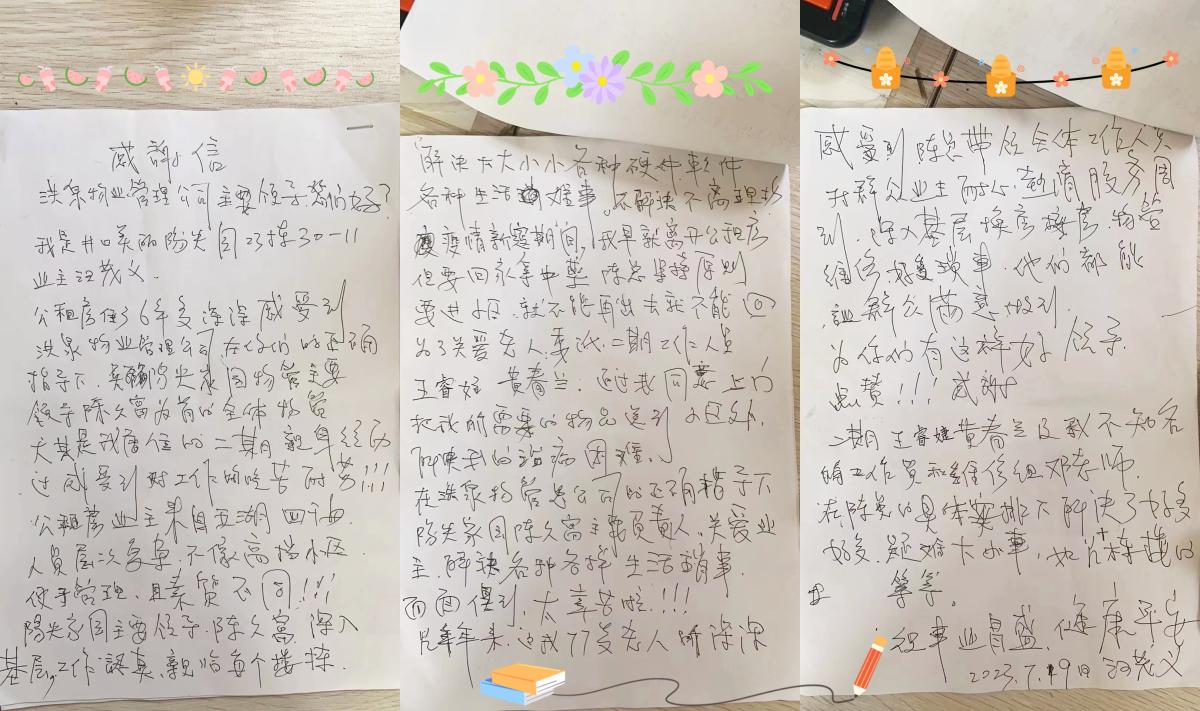 感谢信
洪泉物业管理公司主要领导您们好?
我是井口美丽阳光家园23栋30-11
业主汪茂义.
公租房住了6年多深深感受到
洪泉物业管理公司在你们的正确
指导下.阳光家园物管主要
领导陈久富为首的全体物管
尤其是我居住的二期親身经历
过感受到对工作的吃苦耐劳!!!
公租房业主来自五湖四海.
人员层次复杂.不像高档小区.
便于管理.且素质不同!!!
陽光家园主要领导.陈久富.深入
基层,工作認真.親临每个楼栋.
解决大大小小各种硬件軟件
各种生活難事.不解决不离现场
疫情期间,我早就离开公租房
但要回家拿中藥.陈总坚持原则
要进小区.就不能再出去就不能回
为了关爱老人.委託二期工作人员
王睿婭 黄春兰.通过我同意上门
把我所需要的物品送到小区外.
解决我的治病困难.
在洪泉物管公司的正确指导下
阳光家园陈久富主要负责人.关爱业
主.解决各种各样生活琐事.
面面俱到.太辛苦啦.!!!
几年来.使我77岁老人所深深
感受到陈总带领全体工作人员
对群众业主耐心.熱情服务周
到.深入基层.挨家挨户.物管
维修.好多琐事.他们都能
讓群众满意做到.
为你们有这样好领导.
点赞!!!感謝
二期王睿婭黄春兰及我不知名
的工作员和维修组邓师
在陈总的具体安排下解决了好多
好多.疑难大小事.
等等.
祝事业昌盛.健康平安
2023.7.19日 汪茂义